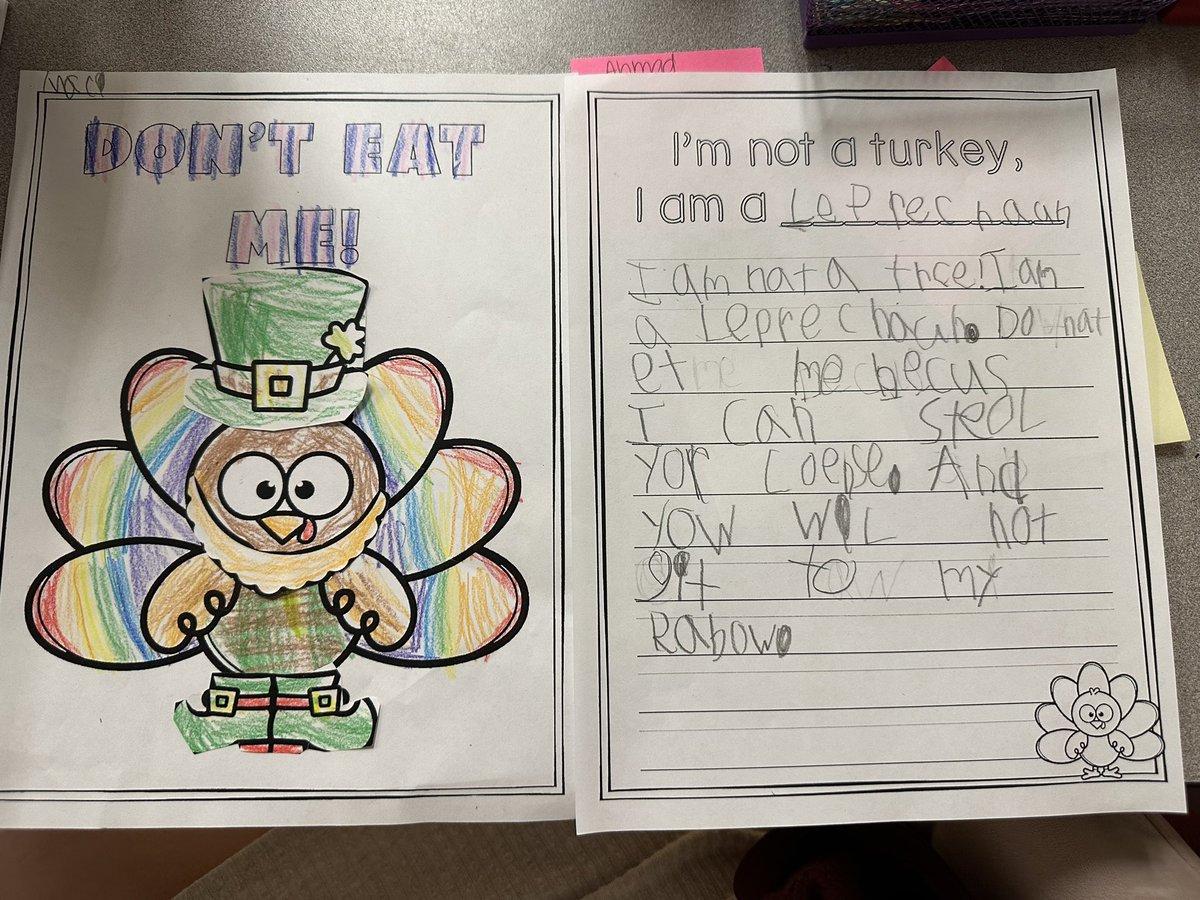 DON'T EAT
ME!
Ahmad
I'm not a turkey,
I am a Leprechaun
I am not a tree! I am
a Leprechaun. Do not
et me becus
I can steol
Yor Loepe. And
yow wil not
git to my
Rabow.